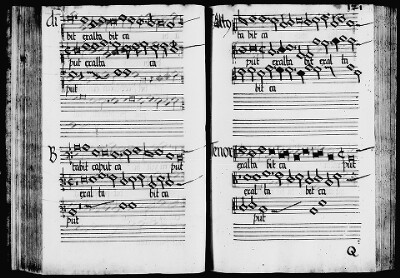 bit exalta bit ca
put exalta ca
put
B
tabit caput ca put
exal ta bit ca
put
121
Alto
ta bit ca
put exalta bit exal ta
bit ca
Tenor
exalta bit ca put
exal ta bit ca
put
Q